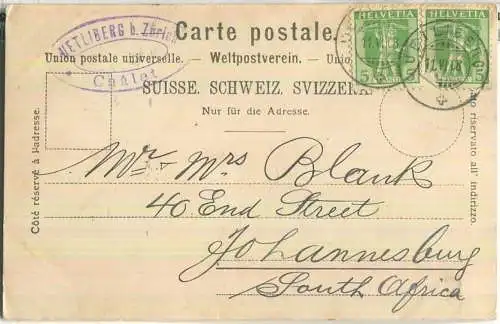 Carte postale.
HELVETIA
HELVETIA
5
5
UETLIBERG b. Zürich
Châlet
Union postale universelle. — Weltpostverein. —
SUISSE. SCHWEIZ. SVIZZERA.
Nur für die Adresse.
Côté réservé à l'adresse.
riservato all' indirizzo.
Mr. Mrs Blank
40 End Street
Johannesburg
South Africa